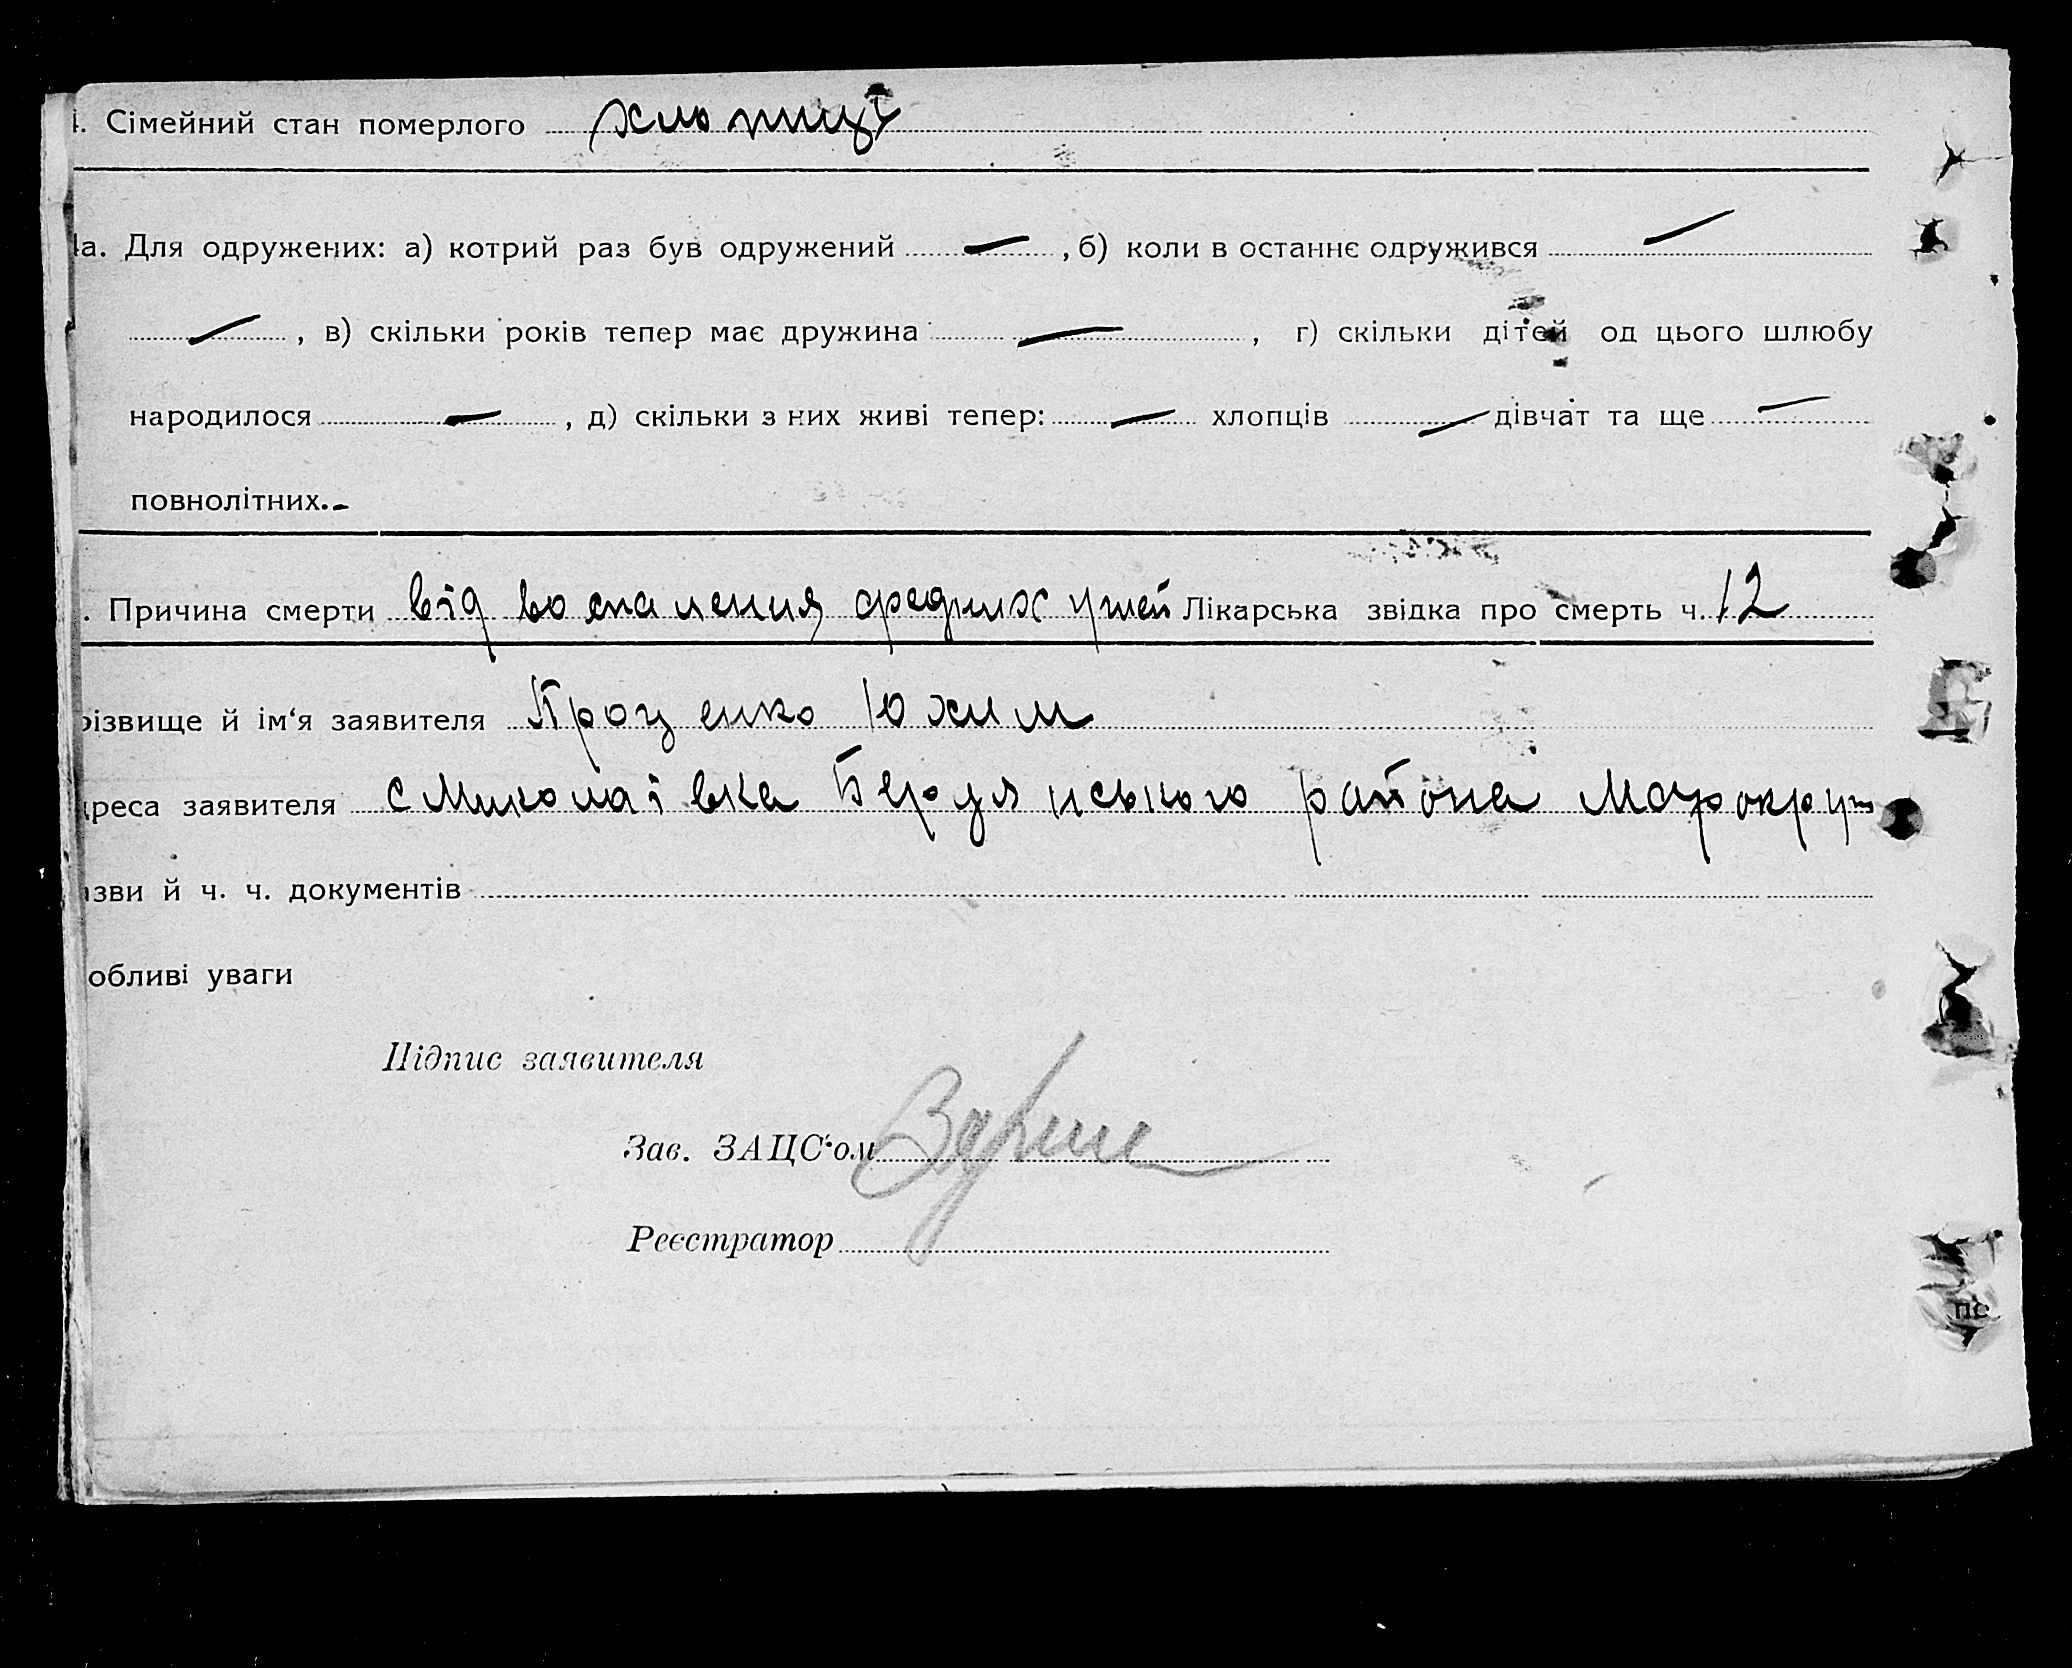 . Сімейний стан померлого хлопиць
а. Для одружених: а) котрий раз був одружений — , б) коли в останнє одружився —
— , в) скільки років тепер має дружина — , г) скільки дітей од цього шлюбу
народилося — , д) скільки з них живі тепер: — хлопців — дівчат та ще —
повнолітних. -
. Причина смерти від воспаления средних ушей Лікарська звідка про смерть ч. 12
різвище й ім‘я заявителя Проценко Юхим
дреса заявителя с Миколаївка Бердянського района Марокруг
азви й ч. ч. документів
обливі уваги
Підпис заявителя
Зав. ЗАЦС‘ом
Реєстратор
пе